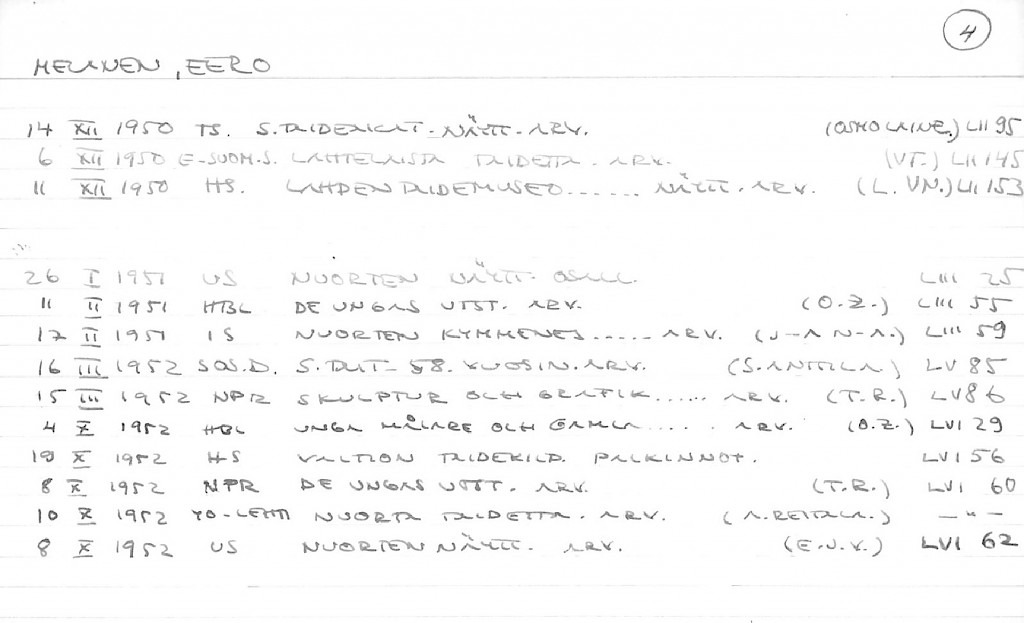 4
MELANEN, EERO
14 XII 1950 TS. S. TAIDEAKAT-NÄYTT-ARV. (OSMO LAINE.) LII 95
6 XII 1950 E-SUOM.S. LAHTELAISTA TAIDETTA. ARV. (VT.) LII 145
11 XII 1950 HS. LAHDEN TAIDEMUSEO...... NÄYTT. ARV. (L. VN.) LII 153
26 I 1951 US NUORTEN NÄYTT- OSALL. LIII 25
11 II 1951 HBL DE UNGAS UTST. ARV. (O.Z.) LIII 55
17 II 1951 IS NUORTEN KYMMENES...... ARV. (J-A N-A.) LIII 59
16 III 1952 SOS.D. S.TAIT- 58. VUOSIN. ARV. (S. ANTTILA) LV 85
15 III 1952 NPR SKULPTUR OCH GRAFIK...... ARV. (T.R.) LV 86
4 X 1952 HBL UNGA MÅLARE OCH GAMLA..... ARV. (O.Z.) LVI 29
19 X 1952 HS VALTION TAIDEKILP. PALKINNOT. LVI 56
8 X 1952 NPR DE UNGAS UTST. ARV. (T.R.) LVI 60
10 X 1952 YO-LEHTI NUORTA TAIDETTA. ARV. (A. REITALA.) — " —
8 X 1952 US NUORTEN NÄYTT. ARV. (E.J.V.) LVI 62